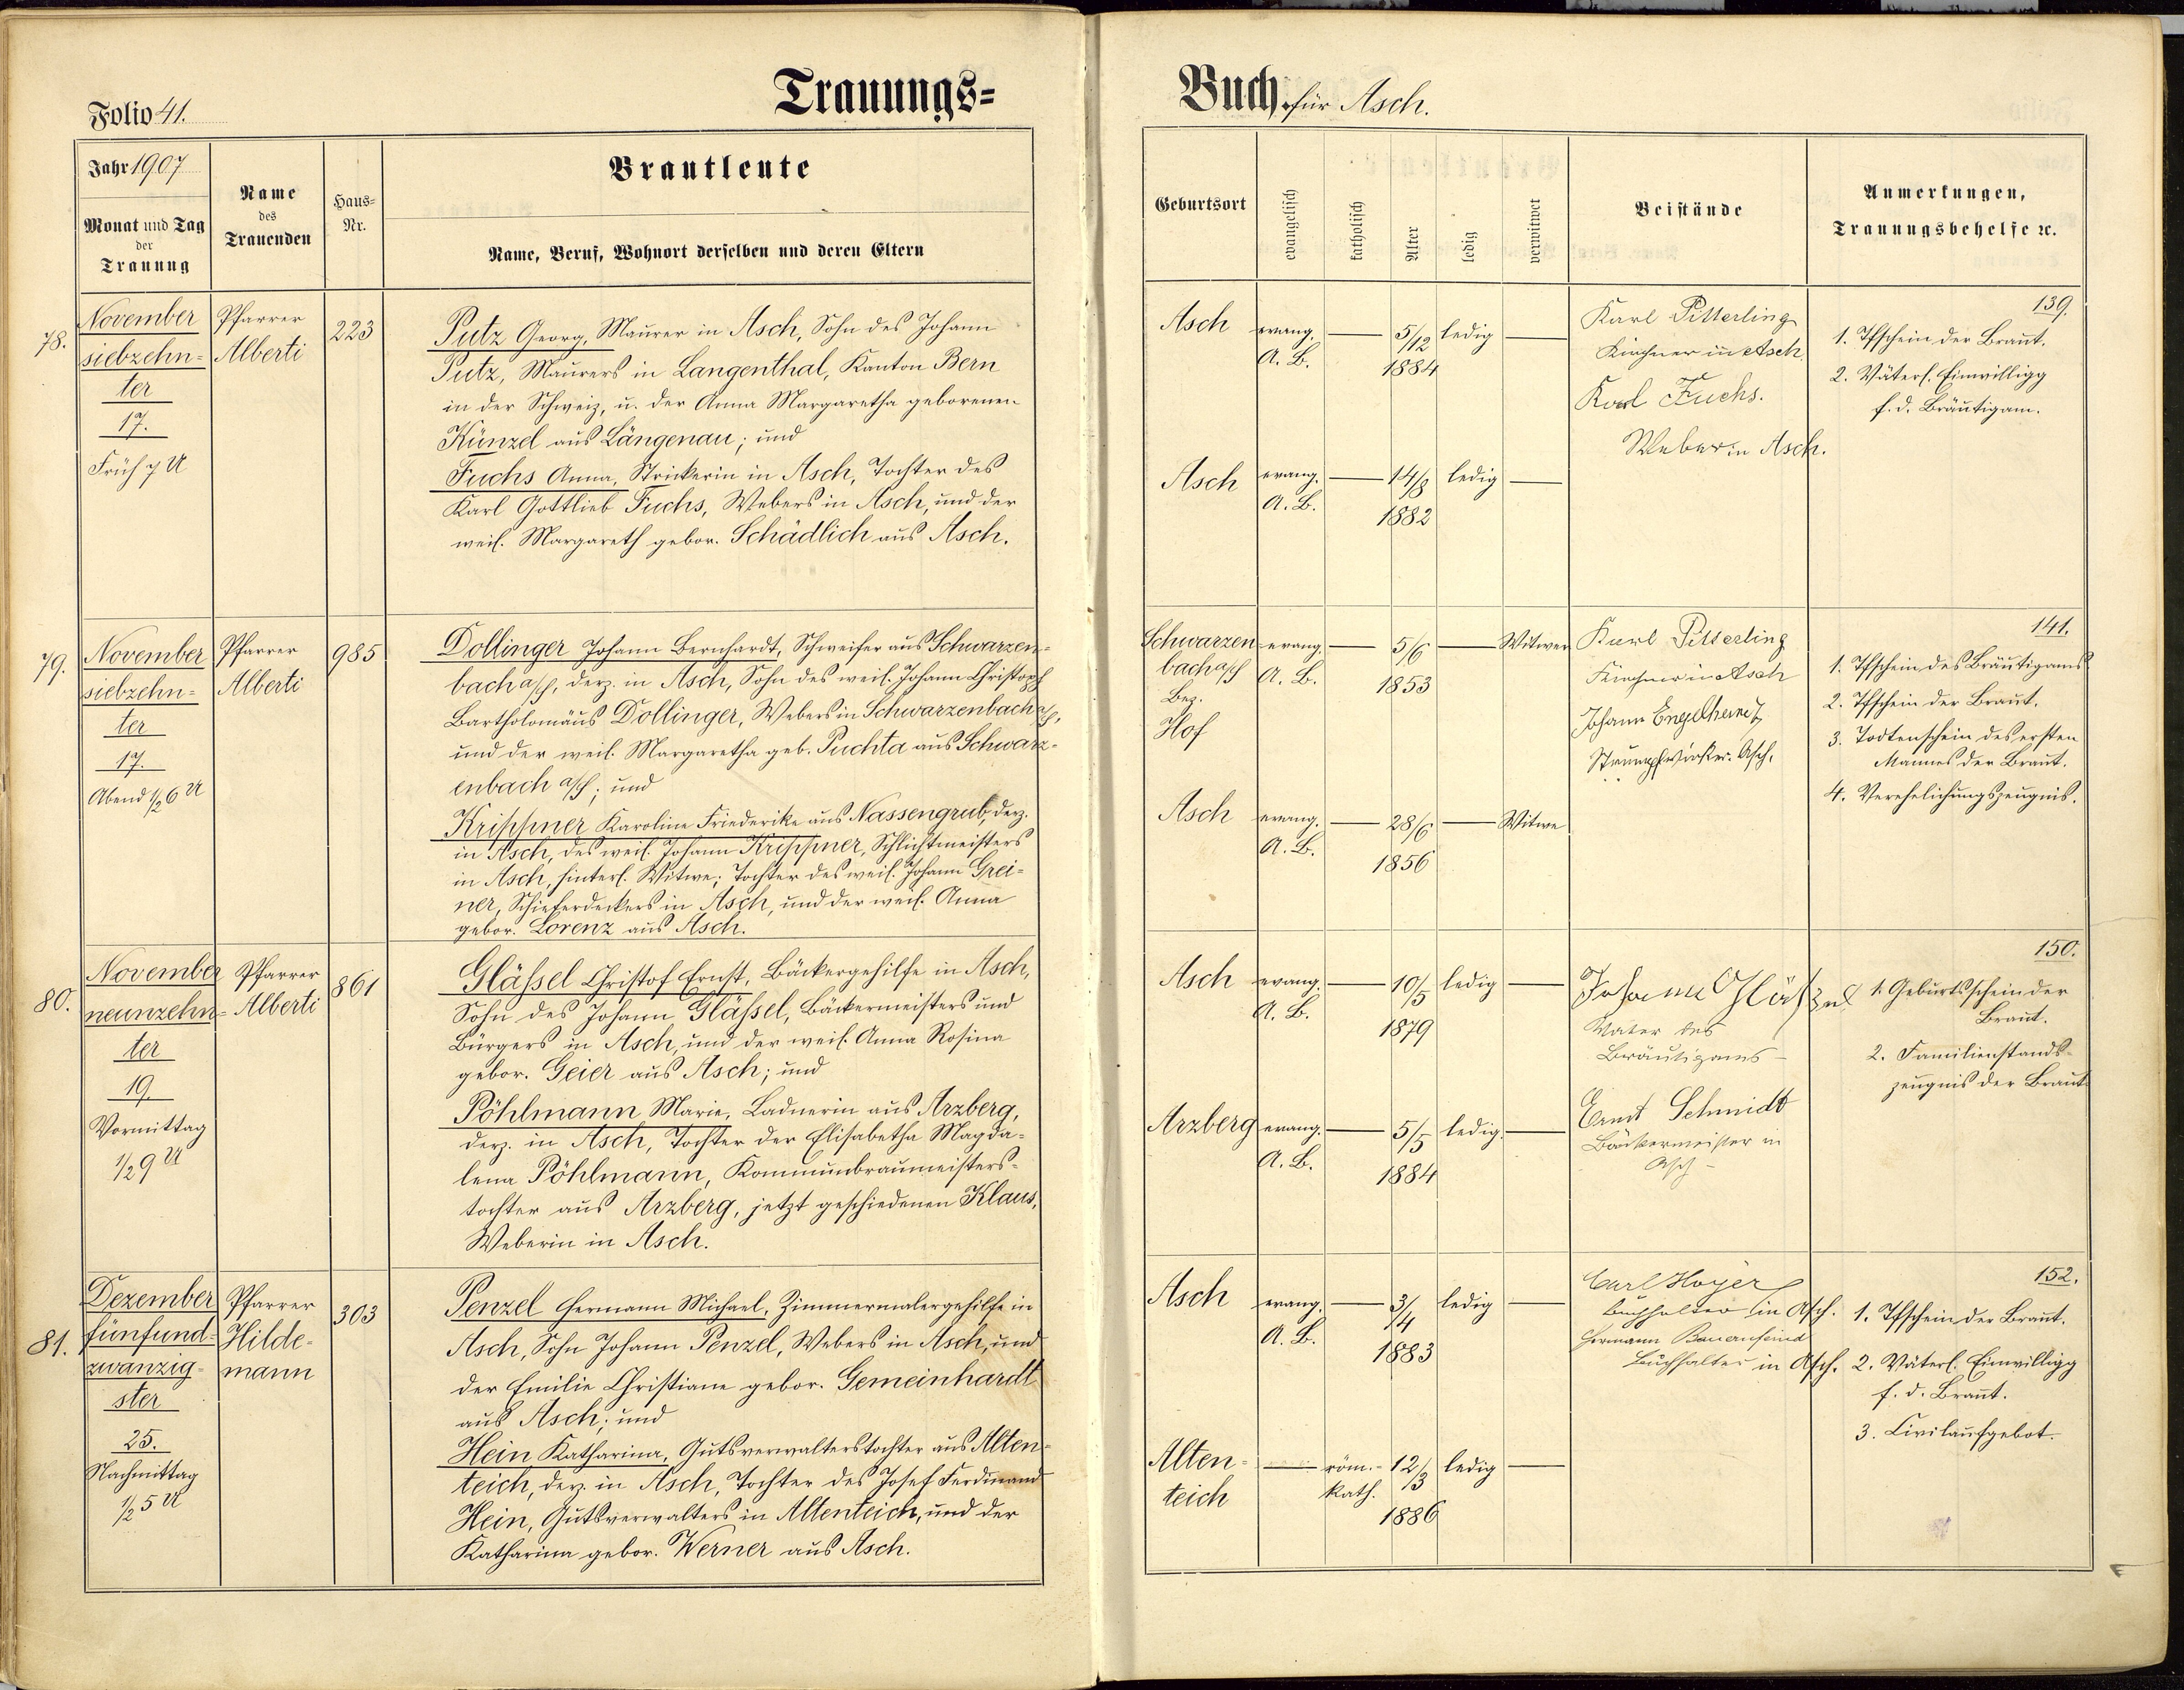 Folio 41.
Trauungs-
Buch für Asch.
Jahr 1907
Monat und Tag
der
Trauung
Name
des
Trauenden
Haus-
Nr.
Brautleute
Name, Beruf, Wohnort derselben und deren Eltern
Geburtsort
evangelisch
katholisch
Alter
ledig
verwitwet
Beistände
Anmerkungen,
Trauungsbehelfe ec.
78.
November
siebzehn-
ter
17.
Früh 7 U
Pfarrer
Alberti
223
Putz Georg, Maurer in Asch, Sohn des Johann
Putz, Maurers in Langenthal, Kanton Bern
in der Schweiz, u. der Anna Margaretha geborenen
Künzel aus Längenau; und
Fuchs Anna, Strickerin in Asch, Tochter des
Karl Gottlieb Fuchs, Webers in Asch, und der
weil. Margareth gebor. Schädlich aus Asch.
Asch
evang.
A. B.
5/12
1884
ledig
Asch
evang.
A. B.
14/8
1882
ledig
Karl Pitterling
Kirchner in Asch
Karl Fuchs.
Weber in Asch.
139.
1. Tfschein der Braut.
2. Väterl. Einwilligg
f. d. Bräutigam.
79.
November
siebzehn-
ter
17.
Abend 1/2 6 U
Pfarrer
Alberti
985
Dollinger Johann Bernhardt, Schweifer aus Schwarzen-
bach a/S, derz. in Asch, Sohn des weil. Johann Christoph
Bartholomäus Dollinger, Webers in Schwarzenbach a/S,
und der weil. Margaretha geb. Puchta aus Schwarz-
enbach a/S; und
Krippner Karoline Friederike aus Nassengrub, derz.
in Asch, des weil. Johann Krippner, Schlichtmeisters
in Asch, hinterl. Witwe; Tochter des weil. Johann Grei-
ner, Schieferdeckers in Asch, und der weil. Anna
gebor. Lorenz aus Asch.
Schwarzen
bach a/S
Bez.
Hof
evang.
A. B.
5/6
1853
Witwer
Asch
evang.
A. B.
28/6
1856
Witwe
Karl Pitterling
Kirchner in Asch
Johann Engelhardt
Strumpfwirker. Asch.
141.
1. Tfschein des Bräutigams
2. Tfschein der Braut.
3. Todtenschein des ersten
Mannes der Braut.
4. Verehelichungszeugnis.
80.
November
neunzehn-
ter
19.
Vormittag
1/2 9 U
Pfarrer
Alberti
861
Gläßel Christof Ernst, Bäckergehilfe in Asch,
Sohn des Johann Gläßel, Bäckermeisters und
Bürgers in Asch, und der weil. Anna Rosina
gebor. Geier aus Asch; und
Pöhlmann Marie, Ladnerin aus Arzberg,
derz. in Asch, Tochter der Elisabetha Magda-
lena Pöhlmann, Kommunbraumeisters-
tochter aus Arzberg, jetzt geschiedenen Klaus,
Weberin in Asch.
Asch
evang.
A. B.
10/5
1879
ledig
Arzberg
evang.
A. B.
5/5
1884
ledig.
Johann
Vater des
Bräutigams -
Ernst Schmidt
Bäckermeister in
Asch -
150.
1. Geburtsschein der
Braut.
2. Familienstands-
zeugnis der Braut
81.
Dezember
fünfund-
zwanzig-
ster
25.
Nachmittag
1/2 5 U
Pfarrer
Hilde-
mann
303
Penzel Hermann Michael, Zimmermalergehilfe in
Asch, Sohn Johann Penzel, Webers in Asch, und
der Emilie Christiane gebor. Gemeinhardt
aus Asch; und
Hein Katharina, Gutsverwalterstochter aus Alten-
teich, derz. in Asch, Tochter des Josef Ferdinand
Hein, Gutsverwalters in Altenteich, und der
Katharina gebor. Werner aus Asch.
Asch
evang.
A. B.
3/4
1883
ledig
Alten-
teich
röm.-
kath.
12/3
1886
ledig
Carl Hoyer
Buchhalter in Asch.
Hermann Bauernfeind
Buchhalter in Asch.
152.
1. Tfschein der Braut.
2. Väterl. Einwilligg
f. d. Braut.
3. Civilaufgebot.